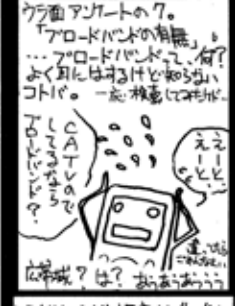 ウラ面アンケートの7。
「ブロードバンドの有無」。
…ブロードバンドって、何?
よく耳にはするけど知らない
コトバ。一応検索してみたけど…
えーと、
えーと、
CATVので
してるなら
ブロードバンド?
違ってたら
ごめんなさい。
広帯域?は?おぅおぅおぅぅ